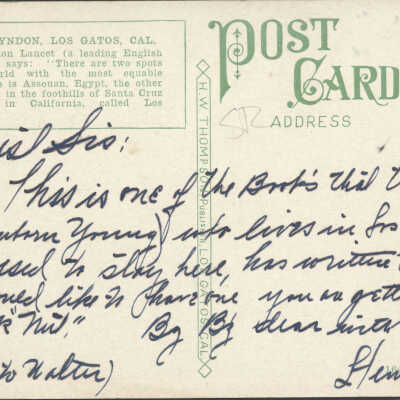 YNDON, LOS GATOS, CAL.
on Lancet (a leading English
says: "There are two spots
rld with the most equable
e is Assouan, Egypt, the other
in the foothills of Santa Cruz
in California, called Los
POST CARD
ADDRESS
H. W. THOMPSON, Publisher, LOS GATOS, CAL.
Sis:
This is one of the Book's that
Young) who lives in Los
used to stay here, has written
like to have one you on
Nut," By By dear
to Walter)